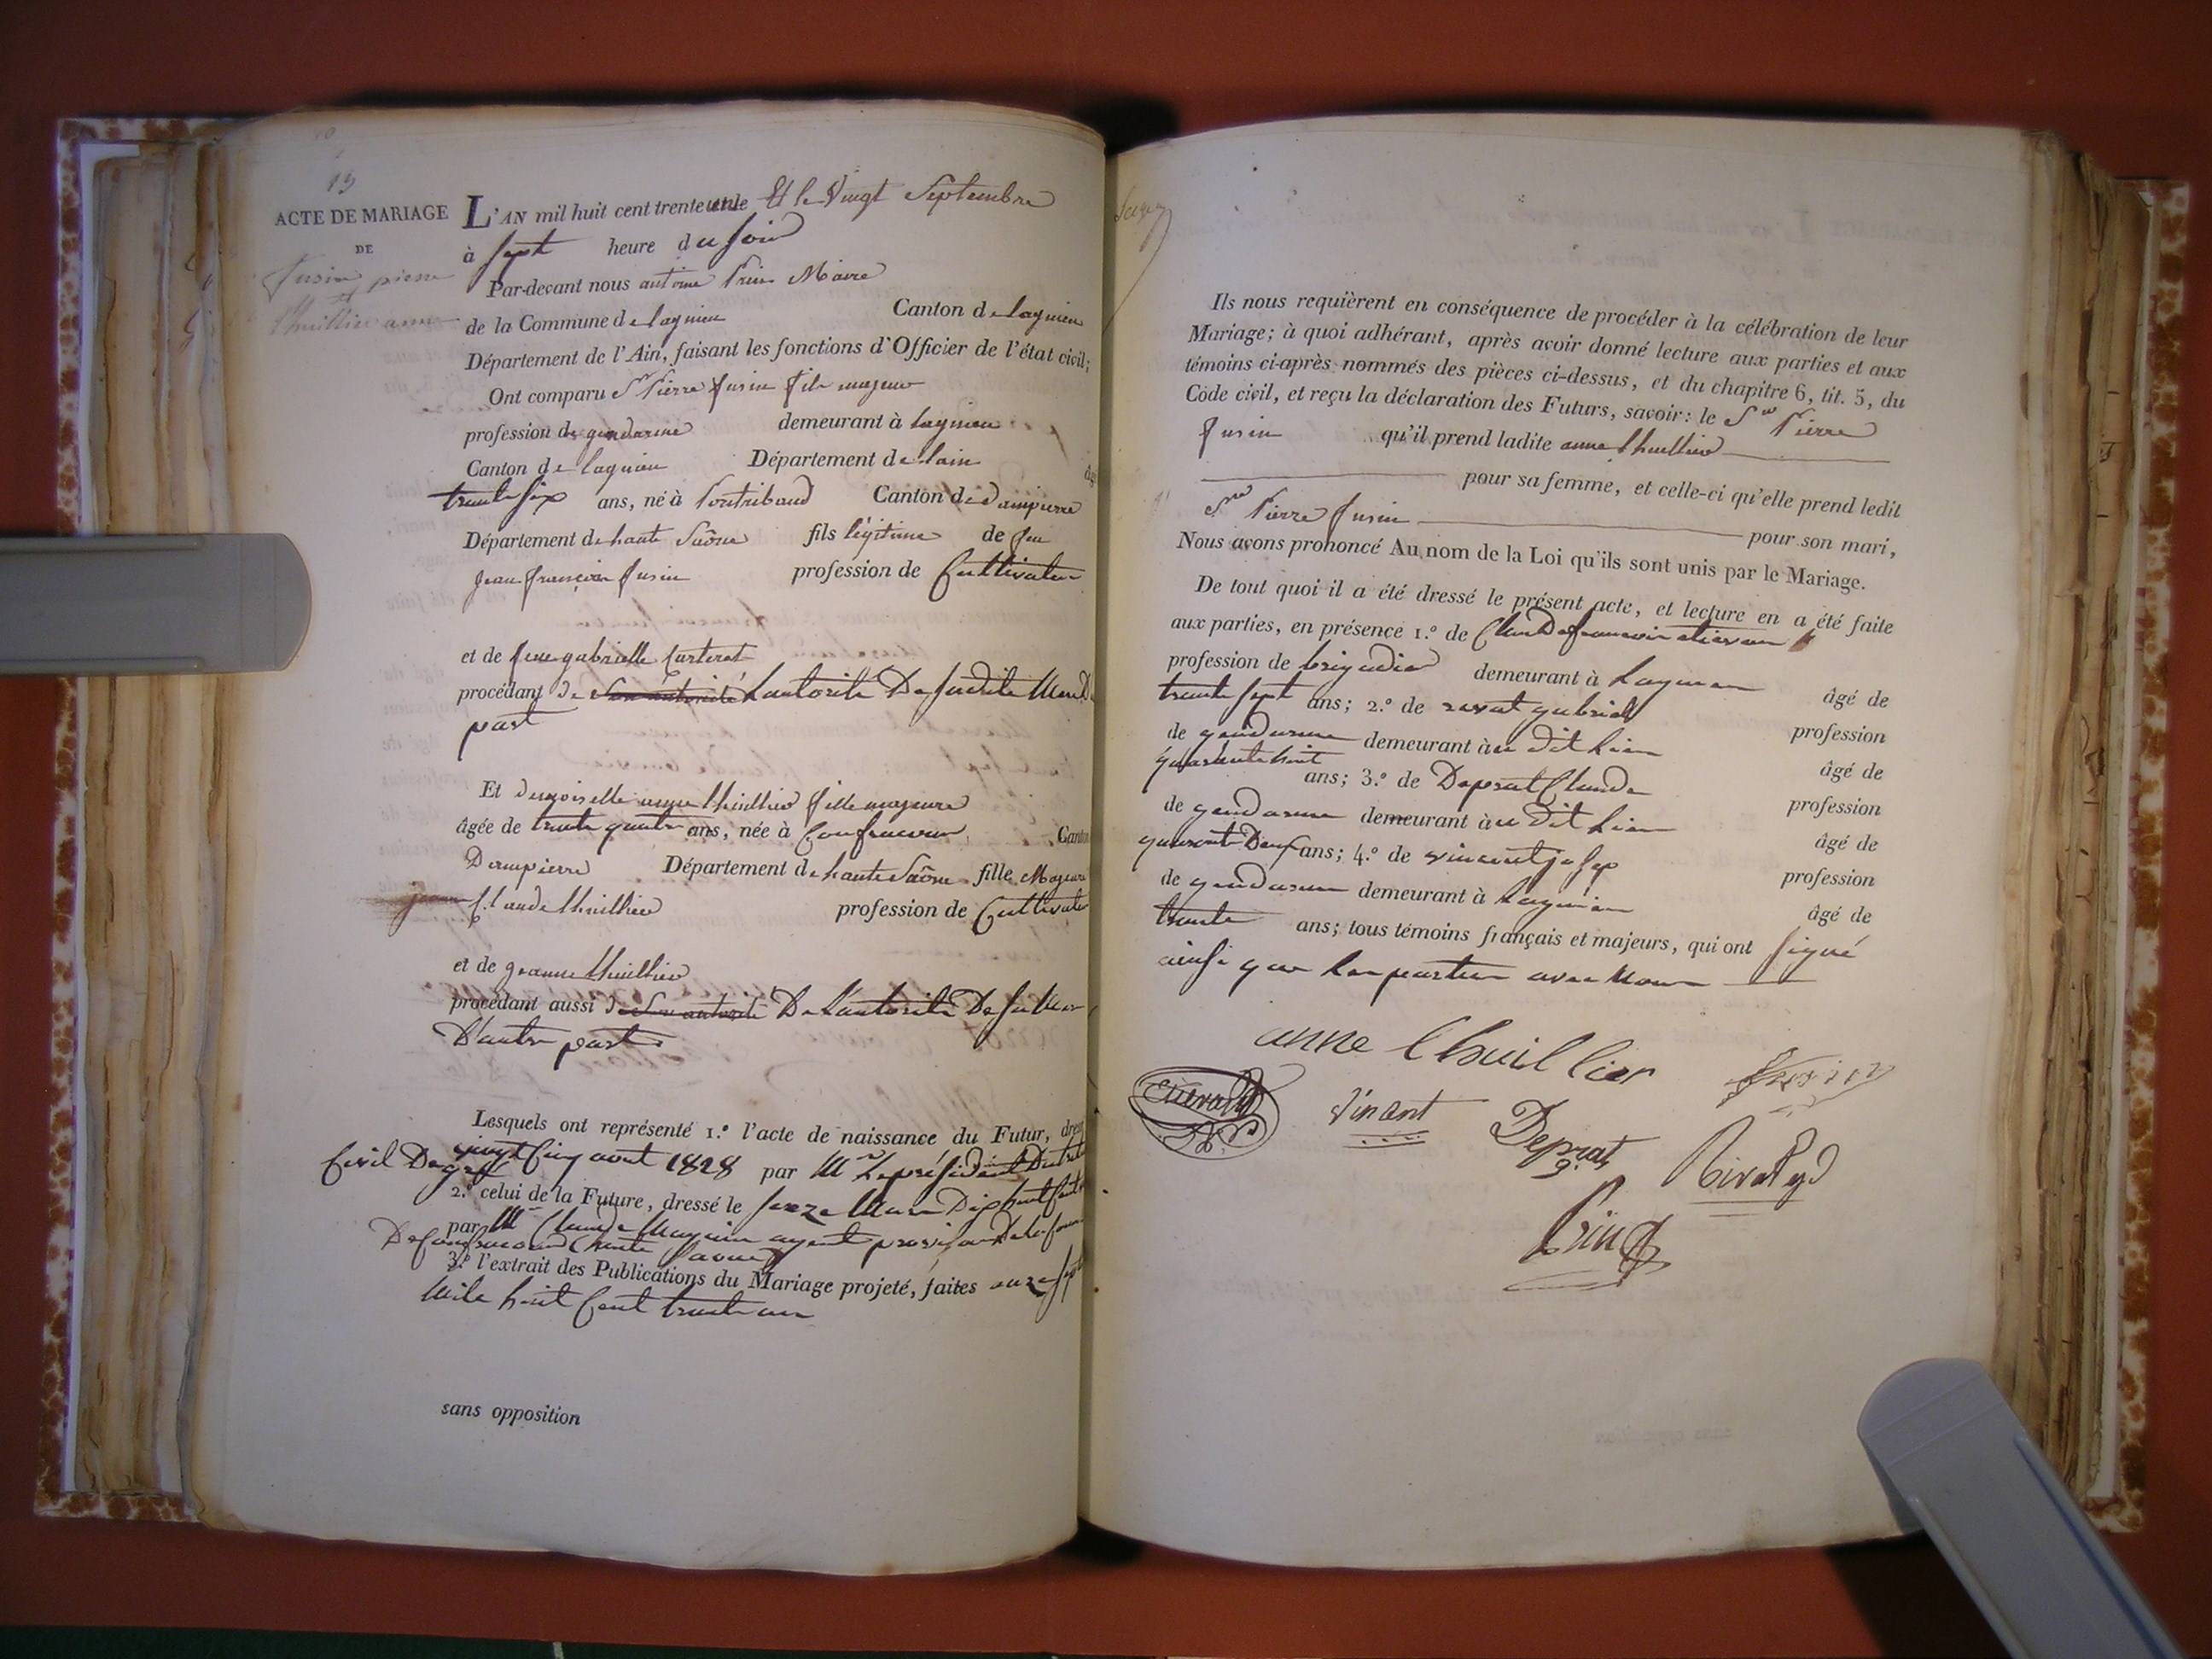 13
ACTE DE MARIAGE
DE
fusin pierre
lhuillier anne
L'AN mil huit cent trente un le Et le Vingt Septembre
à sept heure du soir
Par-devant nous antoine Prin Maire
de la Commune de lagnieu Canton de lagnieu
Département de l'Ain, faisant les fonctions d'Officier de l'état civil;
Ont comparu Sr Pierre fusin fils majeur
profession de gendarme demeurant à lagnieu
Canton de lagnieu Département de lain
trente six ans, né à Canton de dampierre
Département de haute Saône fils légitime de feu
jean françois fusin profession de Cultivateur
et de feue gabrielle
procédant de son autorité Lautorité De sadite
part
Et demoiselle anne lhuillier fille majeure
âgée de trente quatre ans, née à Confracourt Canton
Dampierre Département de haute Saône fille Majeure
jean Claude lhuillier profession de Cultivateur
et de jeanne lhuillier
procédant aussi de Son autorité De Lautorité De sa Mere
D'autre part
Lesquels ont représenté 1.º l'acte de naissance du Futur, dressé
vingt Cinq aout 1828 par Mr Le président Du
Civil De gray
2.º celui de la Future, dressé le Mars Dix huit Cent
par Mr Claude agent De la
De Confracourt haute Saone
3.º l'extrait des Publications du Mariage projeté, faites onze sept
Mile huit Cent trente un
sans opposition
Ils nous requièrent en conséquence de procéder à la célébration de leur
Mariage; à quoi adhérant, après avoir donné lecture aux parties et aux
témoins ci-après nommés des pièces ci-dessus, et du chapitre 6, tit. 5, du
Code civil, et reçu la déclaration des Futurs, savoir: le Sr Pierre
fusin qu'il prend ladite anne lhuillier
pour sa femme, et celle-ci qu'elle prend ledit
Sr Pierre fusin pour son mari,
Nous avons prononcé Au nom de la Loi qu'ils sont unis par le Mariage.
De tout quoi il a été dressé le présent acte, et lecture en a été faite
aux parties, en présence 1.º de Claude françois
profession de brigadier demeurant à Lagnieu âgé de
trente sept ans; 2.º de gabriel profession
de gendarme demeurant à u dit Lieu âgé de
quarante huit ans; 3.º de Deprat Claude profession
de gendarme demeurant à u dit Lieu âgé de
quarante Deux ans; 4.º de vincent josep profession
de gendarme demeurant à Lagnieu âgé de
trente ans; tous témoins français et majeurs, qui ont signé
ainsi que Les parties avec Nous
anne lhuillier
fusin
Vinant
Deprat
Prin